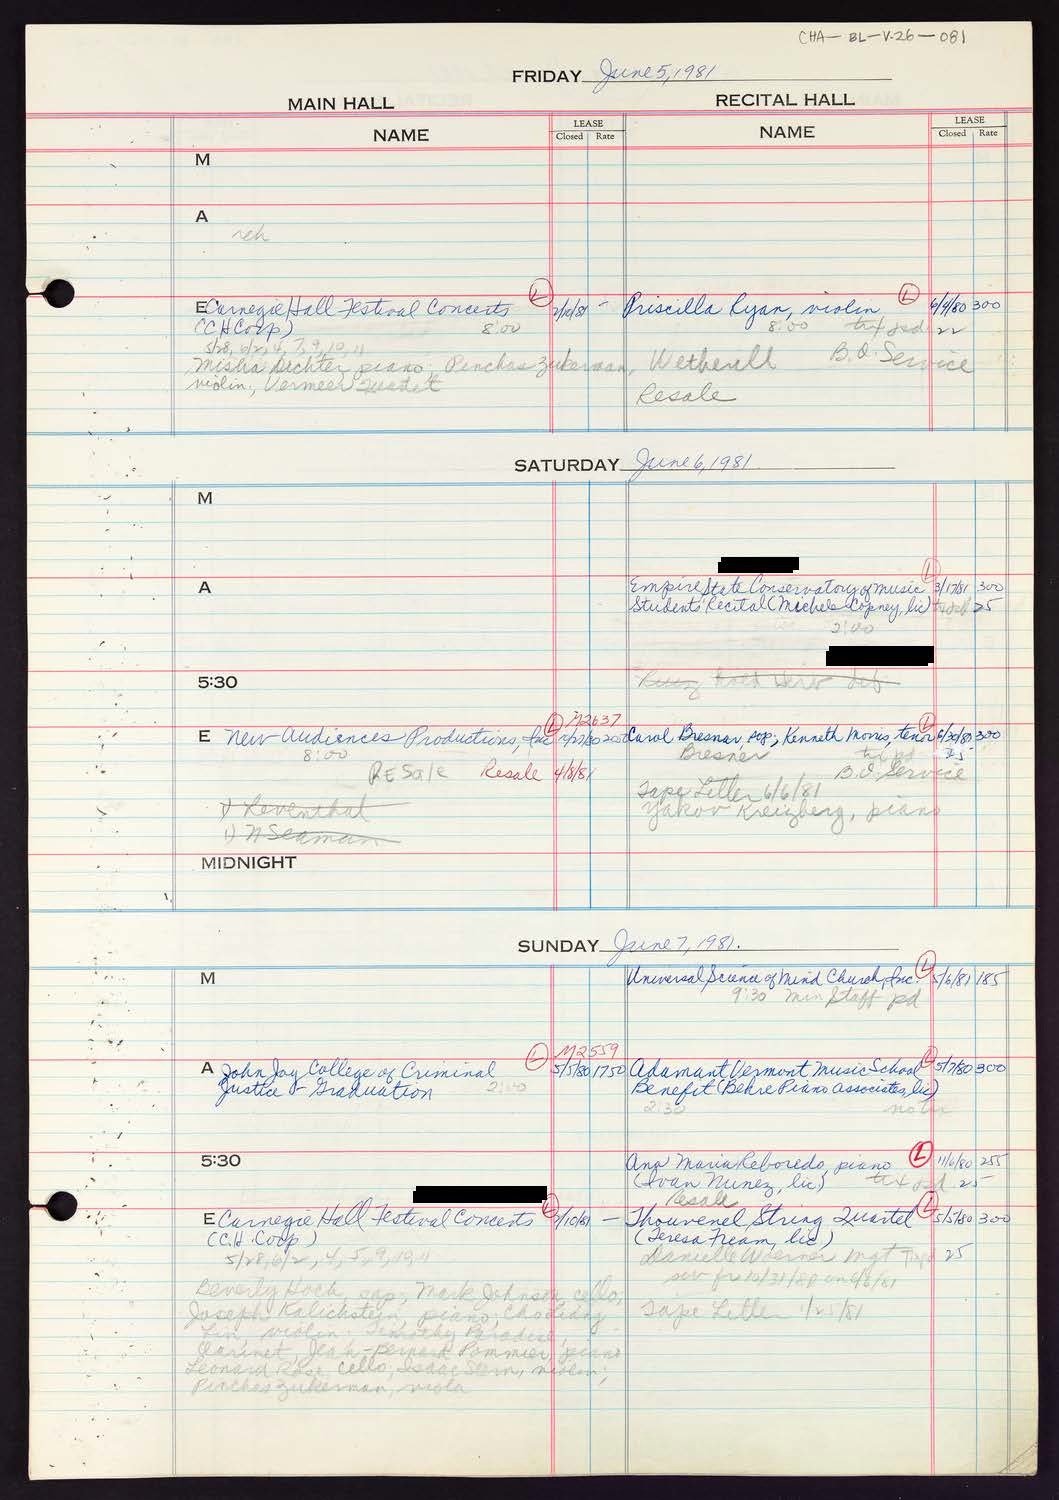 CHA-BL-V.26-081
FRIDAY June 5, 1981
MAIN HALL
RECITAL HALL
NAME
LEASE
Closed Rate
NAME
LEASE
Closed Rate
M
A
reh
E Carnegie Hall Festival Concerts L 2/10/81 -
(CH Corp) 8:00
5/28, 6/2, 4, 7, 9, 10, 11
Misha Dichter piano, Pinchas Zukerman,
violin, Vermeer Quartet
Priscilla Ryan, violin L 6/9/80 300
8:00 22
Wetherell B.O. Service
Resale
SATURDAY June 6, 1981
M
A
Empire State Conservatory of Music L 3/17/81 300
Students Recital (Michele Copney, lic) 25
2:00
5:30
E New Audiences Productions, Inc L M2637
8:00
Resale Resale 4/8/81
1) Leventhal
1) N Seaman
Carol Bresner, sop; Kenneth Morris, tenor L 6/30/80 300
Bresner 25
B.O. Service
Tape Letter 6/6/81
Yakov Kreizberg, piano
MIDNIGHT
SUNDAY June 7, 1981.
M
Universal Science of Mind Church, Inc. L 5/6/81 185
9:30 Min Staff pd
A John Jay College of Criminal L M2559 5/5/80 1750
Justice - Graduation 2:00
Adamant Vermont Music School L 5/7/80 300
Benefit (Behre Piano Associates, lic)
2:30 no tix
5:30
Ana Maria Reboredo, piano L 11/6/80 255
(Ivan Nunez, lic) 25
Resale
E Carnegie Hall Festival Concerts L 2/10/81 -
(C.H. Corp)
5/28, 6/2, 4, 5, 9, 10, 11
Beverly Hoch, sop; Mark Johnson, cello;
Joseph Kalichstein, piano; Cho-Liang
Lin, violin; Timothy Paradise,
clarinet, Jean-Bernard Pommier, piano
Leonard Rose, cello, Isaac Stern, violin;
Pinchas Zukerman, viola
Thouvenel String Quartet L 5/5/80 300
(Teresa Fream, lic)
Danielle Woerner Mgt 25
Tape Letter 1/25/81